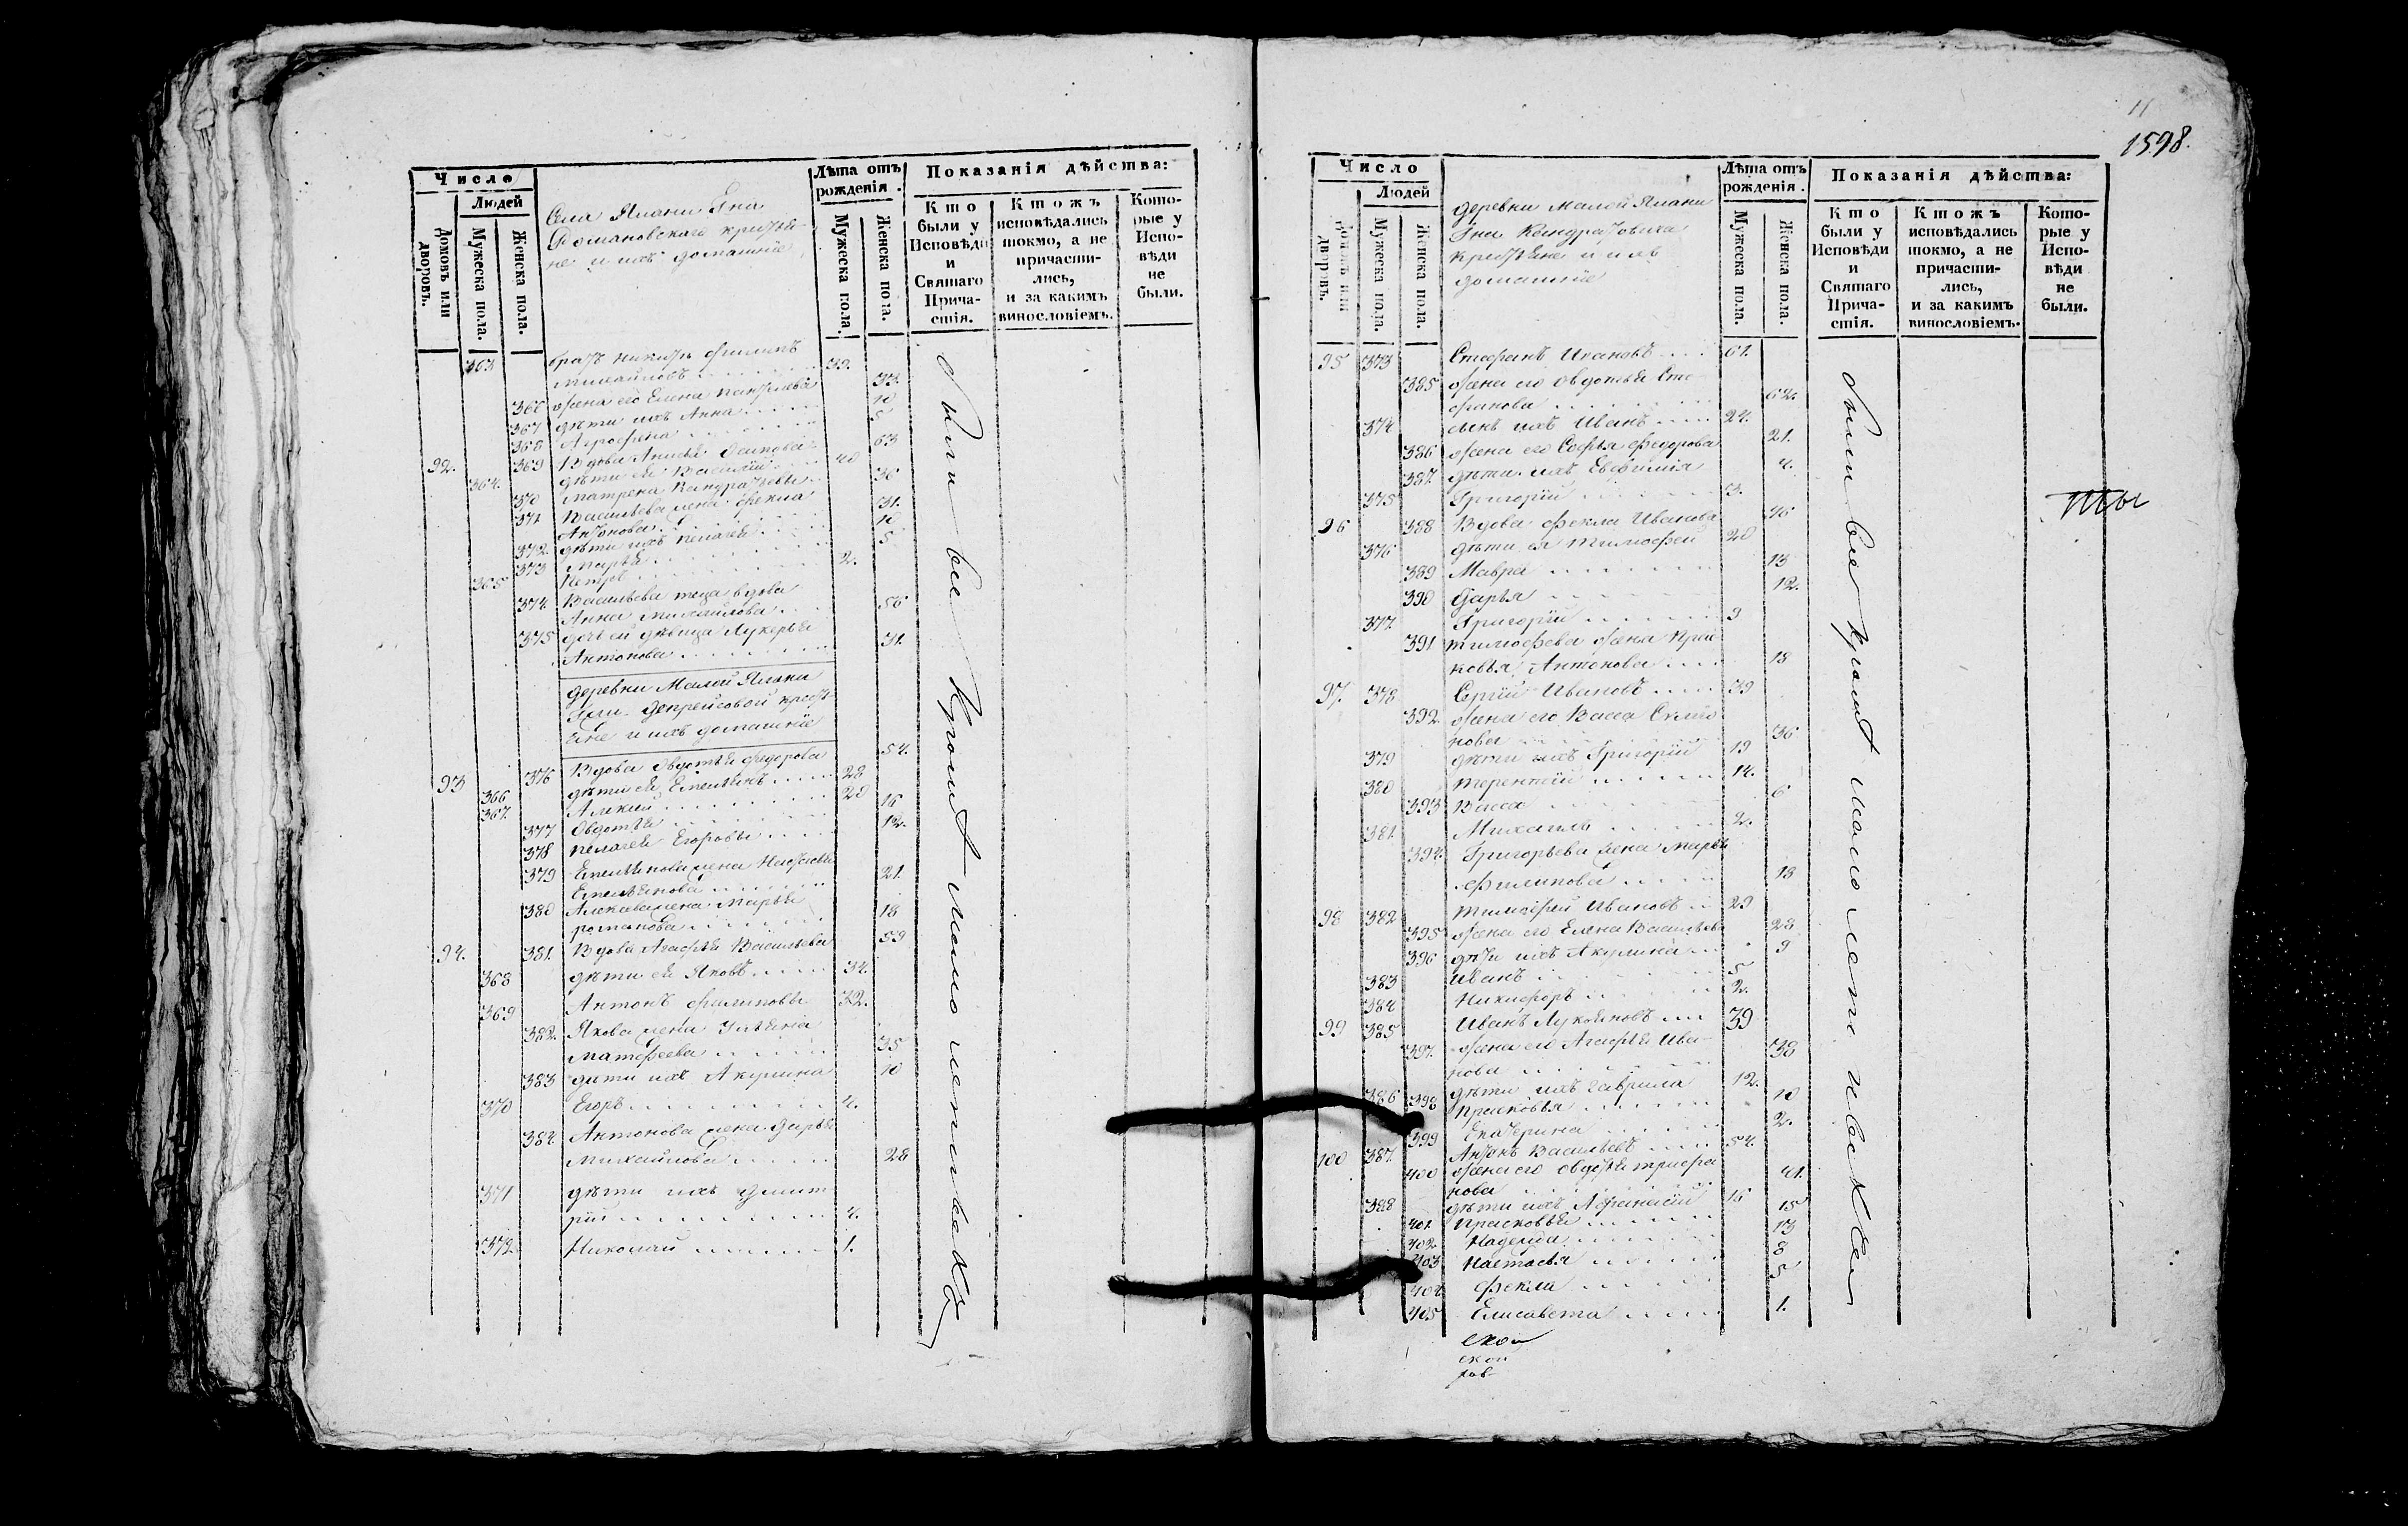 Число
Людей
Домовъ или дворовъ.
Мужеска пола.
Женска пола.
Села Ялани Гна
Домановскаго крестья-
не и ихъ домашніе
Лѣта отъ рожденія.
Мужеска пола.
Женска пола.
Показанія дѣйства:
Кто были у Исповѣди и Святаго Причастія.
Ктожъ исповѣдались токмо, а не причастились, и за какимъ винословіемъ.
Которые у Исповѣди не были.
363 братъ ихъ Филипъ
Михайловъ 39.
366 жена его Елена 33.
367 дѣти ихъ Анна 10
368 Агрофена 5
92. 369 Вдова Анисья Осипова 63
364. дѣти ея Василій 40
370 Матрена Кандратьевы 36
371 Васильева жена Фекла
Антонова 31.
372. дѣти ихъ Пелагея 10
373 Марья 5
365 Петръ 2.
374. Васильева теща вдова
Анна Михайлова 56
375 дочь ея дѣвица Лукерья
Антонова 31.
деревни Малой Ялани
Гжи Депрейсовой кресть-
яне и ихъ домашніе
93 376 Вдова Овдотья Федорова 54.
366 дѣти ея Емельянъ 28
367. Алексѣй 20
377 Овдотья 16
378 Пелагея Егоровы 12.
379 Емельянова жена Настасья
Емельянова 21.
380 Алексѣева жена Марья
Романова 18
94. 381. Вдова Агафья Васильева 59
368 дѣти ея Яковъ 34.
369 Антонъ Филиповы 32.
382. Якова жена Ульяна
Матфеева 35
383 дѣти ихъ Акулина 10
370 Егоръ 4.
384. Антонова жена Дарья
Михайлова 28
371 дѣти ихъ Димит-
рій 4.
372. Николай 1.
были все кроме малолетныхъ
11
1598.
Число
Людей
Домовъ или дворовъ.
Мужеска пола.
Женска пола.
деревни Малой Ялани
Гна Кандратовича
крестьяне и ихъ
домашніе
Лѣта отъ рожденія.
Мужеска пола.
Женска пола.
Показанія дѣйства:
Кто были у Исповѣди и Святаго Причастія.
Ктожъ исповѣдались токмо, а не причастились, и за какимъ винословіемъ.
Которые у Исповѣди не были.
95 373 Стефанъ Ивановъ 61.
385 жена его Овдотья Сте-
фанова 62.
374 сынъ ихъ Иванъ 24.
386 жена его Софья Федорова 21.
387. дѣти ихъ Евфимія 4.
375 Григорій 3.
96 388 Вдова Фекла Иванова 46
376 дѣти ея Тимофей 20
389 Мавра 13
390 Дарья 12.
377. Григорій 9
391 Тимофеева жена Прас-
ковья Антонова 18
97. 378. Сергій Ивановъ 39
392. жена его Васса
нова 36
379 дѣти ихъ Григорій 19
380 Терентій 14.
393 Васса 6
381. Михаилъ 2.
394. Григорьева жена Марья
Филипова 18
98 382 Тимофей Ивановъ 29
395 жена его Елена Васильева 28
396 дѣти ихъ Акулина 9
383 Иванъ 5
384 Никифоръ 2.
99 385 Иванъ Лукояновъ 39
397. жена его Агафья Ива-
нова 38
386 дѣти ихъ Гаврила 12.
398 Прасковья 10
399 Екатерина 2.
100 387. Антонъ Васильевъ 54.
400 жена его Овдотья Трифа-
нова 41.
388 дѣти ихъ Афанасій 16
401. Прасковья 15
402. Надежда 13
403 Настасья 8
404. Фекла 5
405 Елисавета 1.
были все кроме малолетныхъ